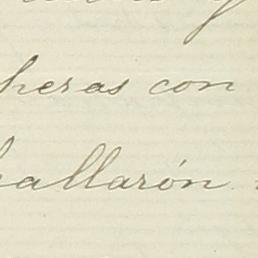 heras con
hallarón